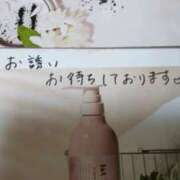 お誘い
お待ちしております